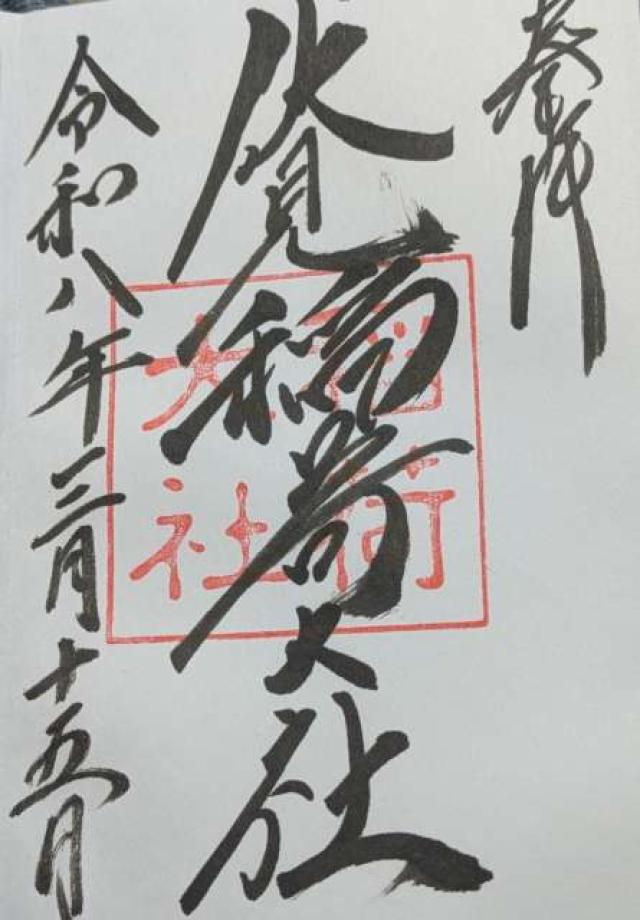 奉拝
伏見稲荷大社
稲荷
大社
令和八年三月十五日